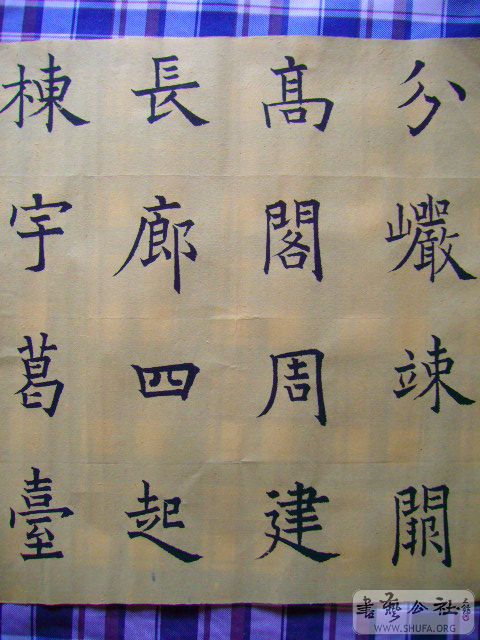 分巖竦闕
高閣周建
長廊四起
棟宇葛臺
書藝公社
WWW.SHUFA.ORG